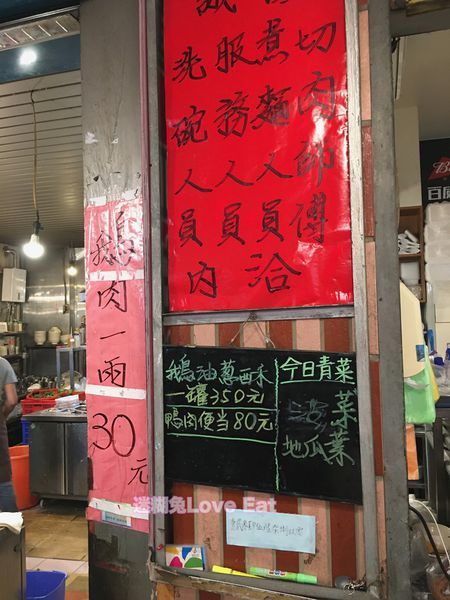 切肉師傅
煮麵人員洽
服務人員
洗碗人員內
鵝肉一兩30元
鵝油蔥酥
一罐350元
鴨肉便當80元
今日青菜
菜
地瓜菜
迷糊兔Love Eat